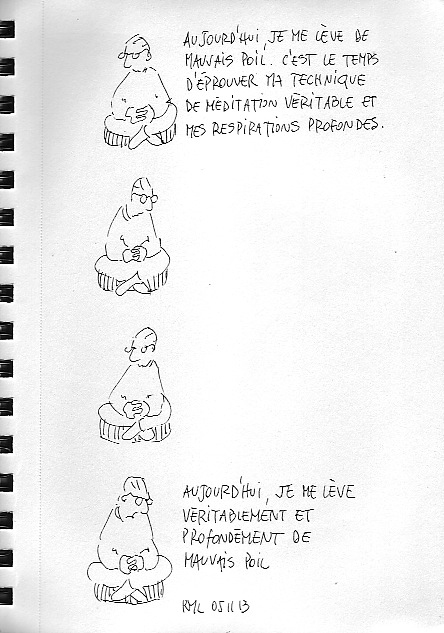 AUJOURD'HUI, JE ME LÈVE DE
MAUVAIS POIL. C'EST LE TEMPS
D'ÉPROUVER MA TECHNIQUE
DE MÉDITATION VÉRITABLE ET
MES RESPIRATIONS PROFONDES.
AUJOURD'HUI, JE ME LÈVE
VÉRITABLEMENT ET
PROFONDÉMENT DE
MAUVAIS POIL
RML 05 11 13